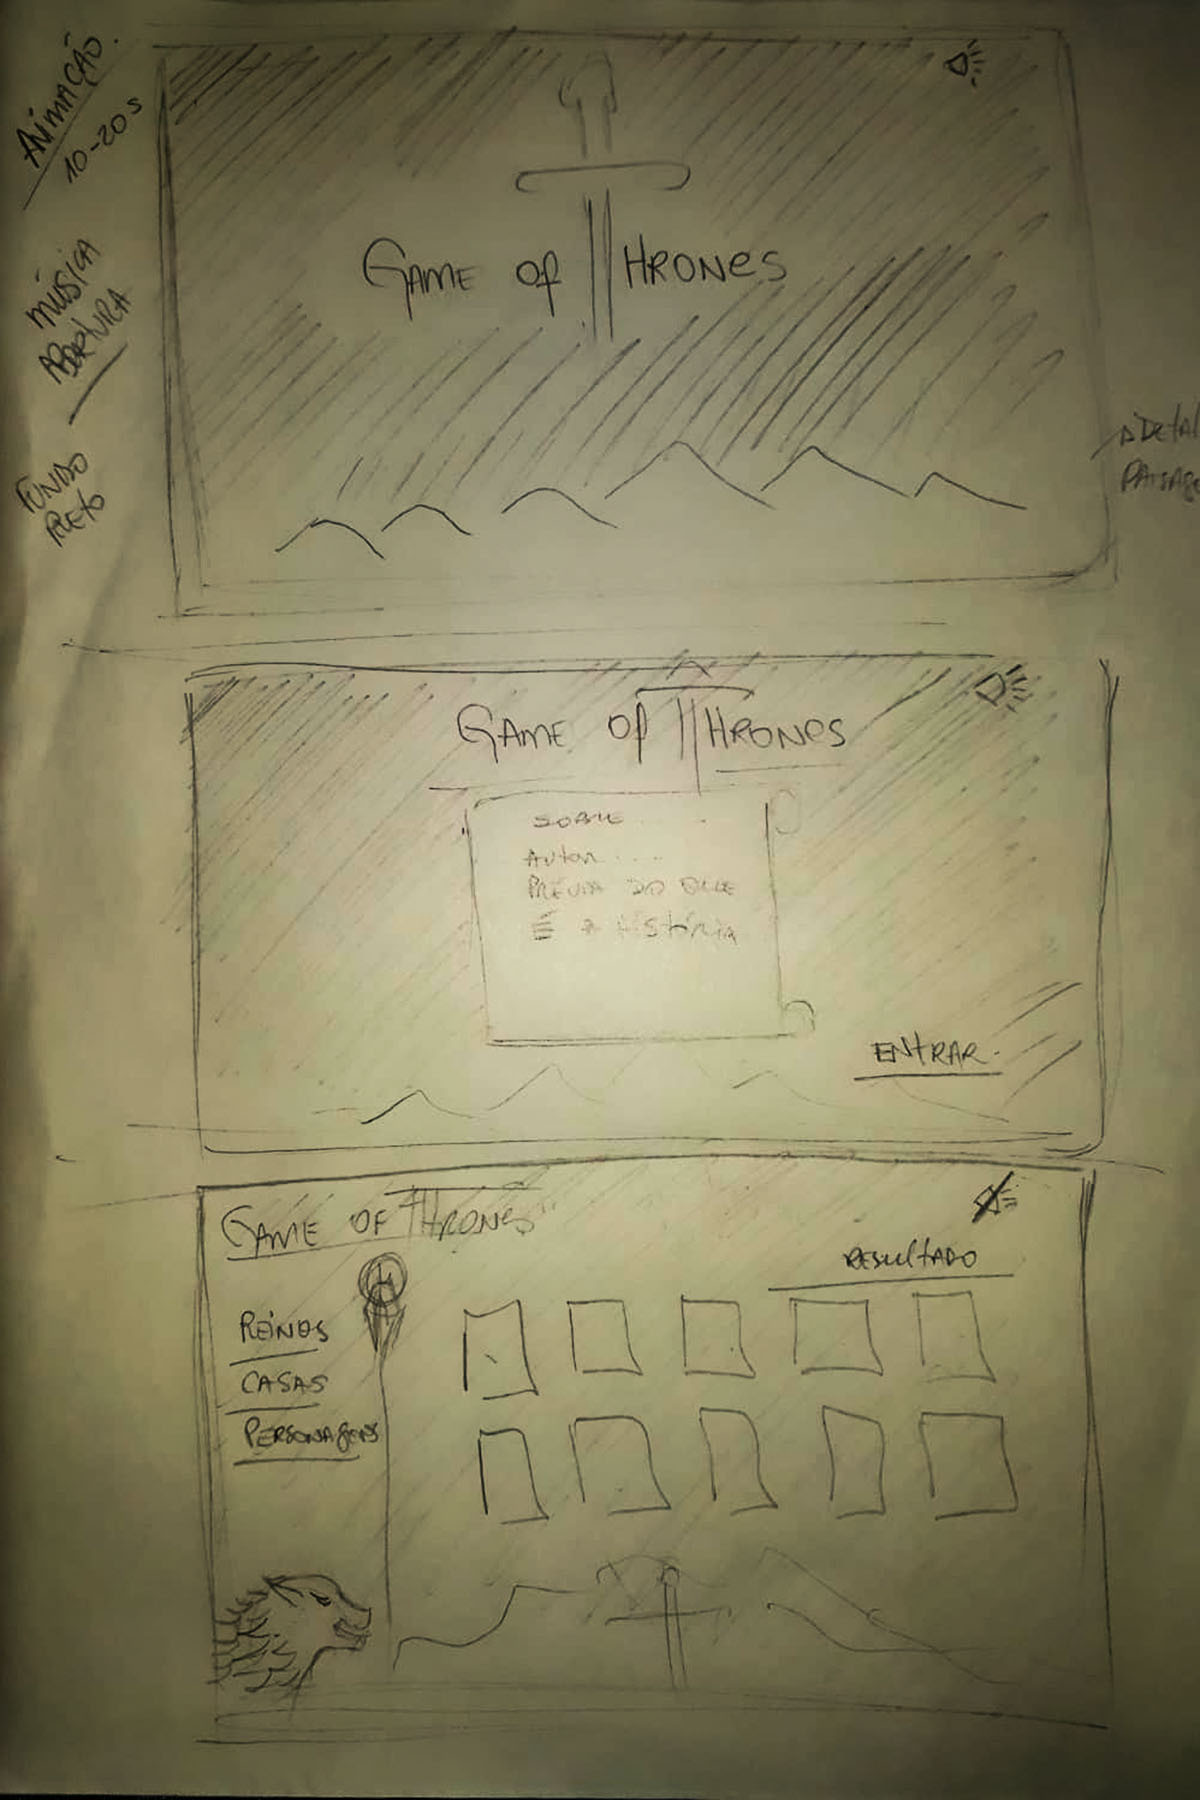 ANIMAÇÃO.
10-20s
MÚSICA
ABERTURA
FUNDO
PRETO
GAME OF THRONES
GAME OF THRONES
SOBRE . . .
AUTOR . . . .
PRÉVIA DO QUE
É A HISTÓRIA
ENTRAR.
GAME OF THRONES
RESULTADO
REINOS
CASAS
PERSONAGENS